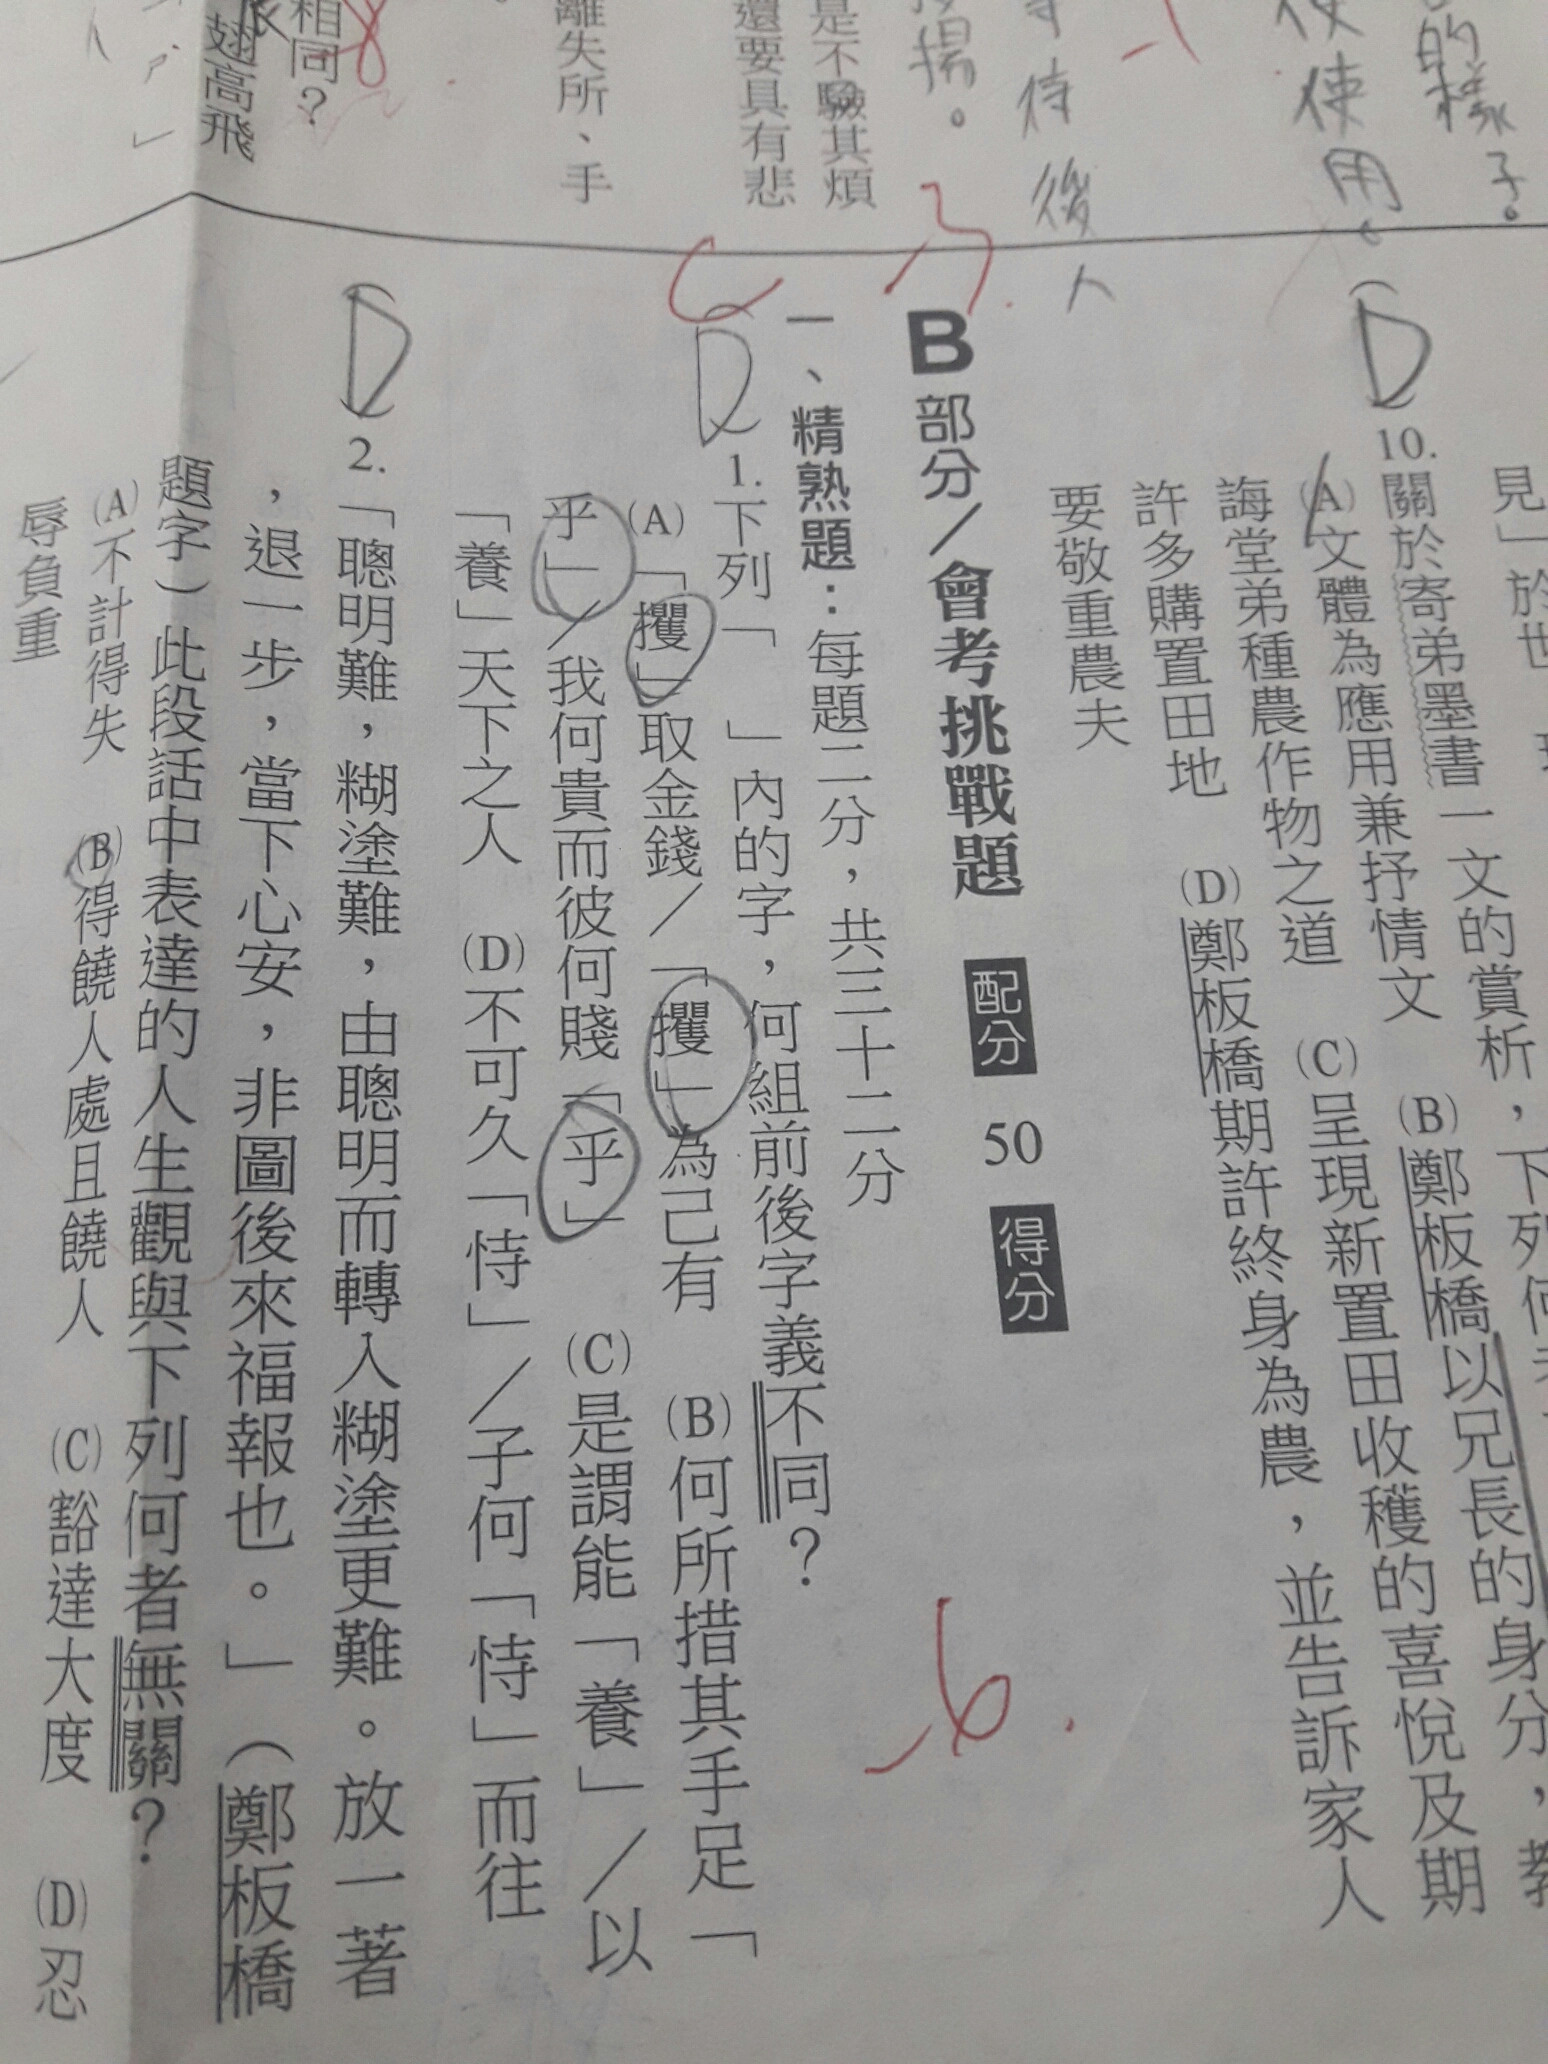 的樣子。
使使用。
待後人
揚。
是不驗其煩
還要具有悲
離失所、手
相同？
翅高飛
見」於世
D
10.關於寄弟墨書一文的賞析，下列何
(A)文體為應用兼抒情文 (B)鄭板橋以兄長的身分，教
誨堂弟種農作物之道 (C)呈現新置田收穫的喜悅及期
許多購置田地 (D)鄭板橋期許終身為農，並告訴家人
要敬重農夫
B部分/會考挑戰題 配分 50 得分
6
一、精熟題：每題二分，共三十二分
D
C
1.下列「 」內的字，何組前後字義不同？
(A)「攫」取金錢／「攫」為己有 (B)何所措其手足「
乎」／我何貴而彼何賤「乎」 (C)是謂能「養」／以
「養」天下之人 (D)不可久「恃」／子何「恃」而往
D
2.「聰明難，糊塗難，由聰明而轉入糊塗更難。放一著
，退一步，當下心安，非圖後來福報也。」（鄭板橋
題字）此段話中表達的人生觀與下列何者無關？
(A)不計得失 (B)得饒人處且饒人 (C)豁達大度 (D)忍
辱負重